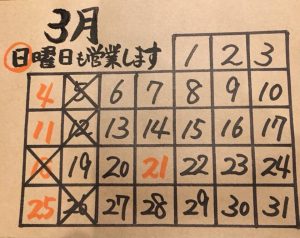 3月
日曜日も営業します
1 2 3
4 5 6 7 8 9 10
11 12 13 14 15 16 17
18 19 20 21 22 23 24
25 26 27 28 29 30 31